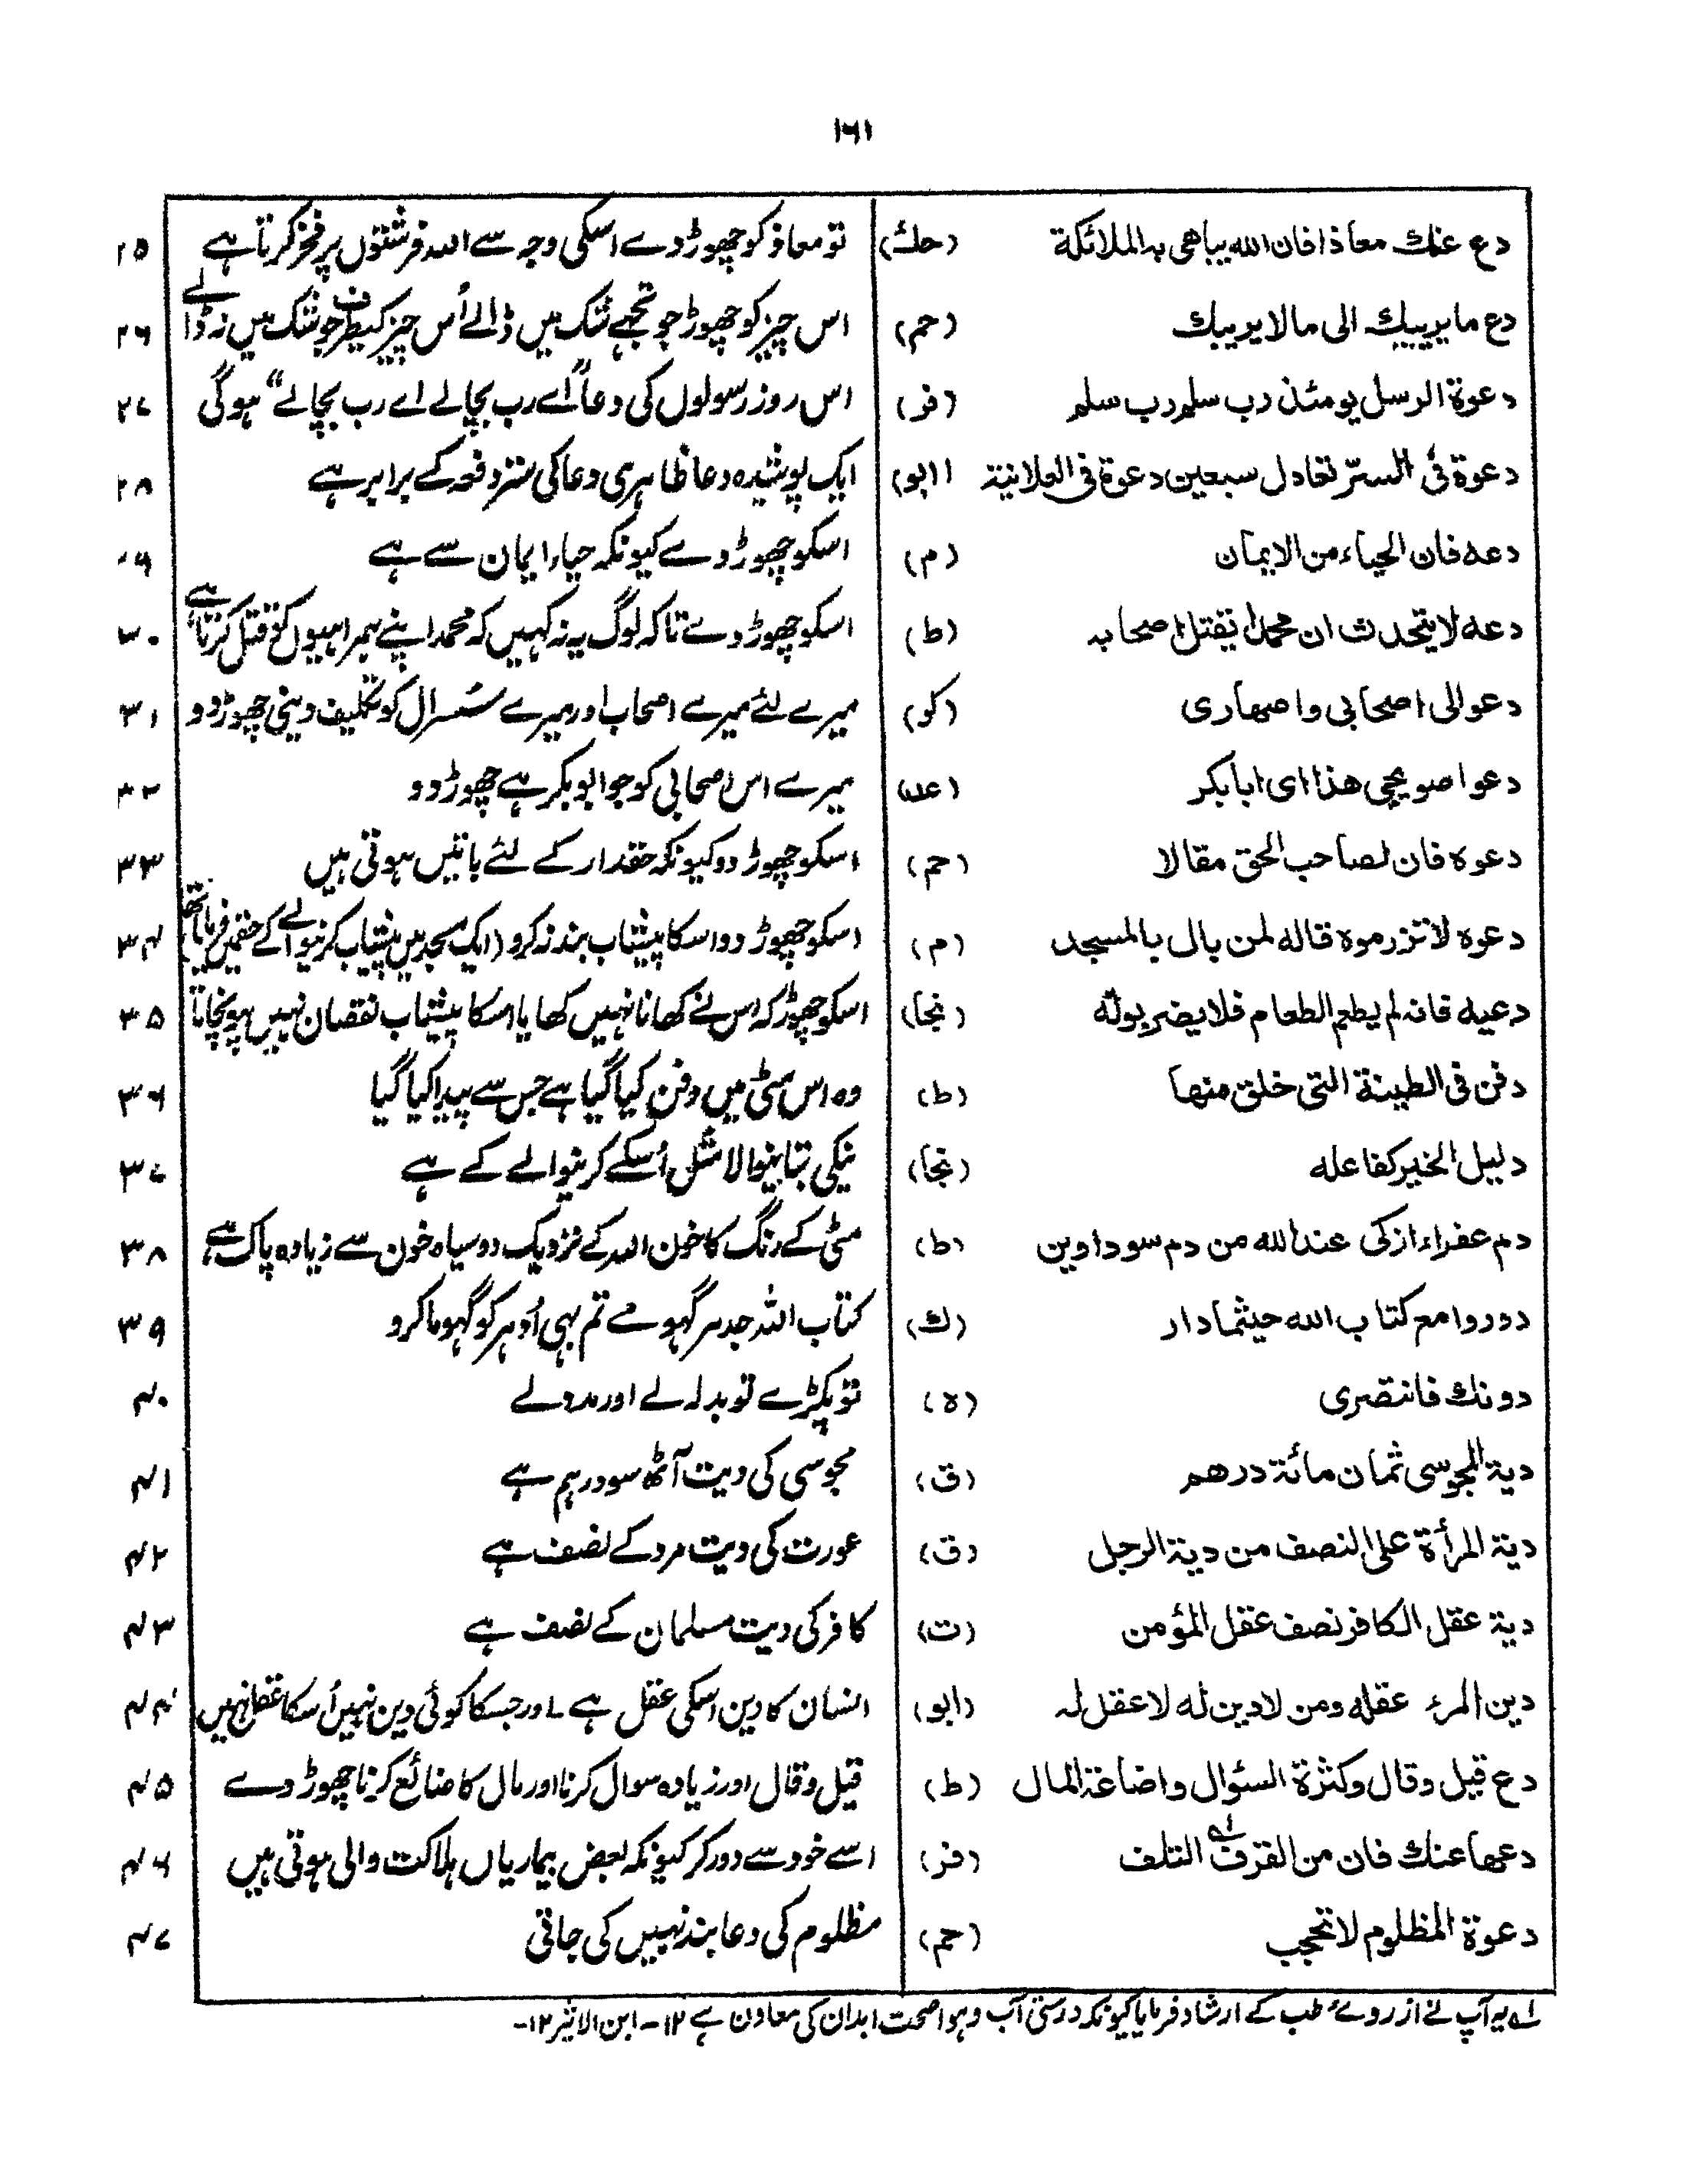 ۱۶۱
دع عنك معاذا فان الله يباهى به الملائكة (حك) تو معاذ کو چھوڑ دے اسکی وجہ سے اللہ فرشتوں پر فخر کرتا ہے ۲۵
دع ما يريبك الى ما لا يريبك (حم) اس چیز کو چھوڑ جو تجھے شک میں ڈالے اُس چیز کیطرف جو شک میں نہ ڈالے ۲۶
دعوة الرسل يومئذ رب سلم رب سلم (فر) اس روز رسولوں کی دعا "اے رب بچالے اے رب بچالے" ہوگی ۲۷
دعوة فى السرّ تعادل سبعين دعوة فى العلانية (ابو) ایک پوشیدہ دعا ظاہری دعا کی ستر دفعہ کے برابر ہے ۲۸
دعه فان الحياء من الايمان (م) اسکو چھوڑ دے کیونکہ حیاء ایمان سے ہے ۲۹
دعه لا يتحدث ان محمدا يقتل اصحابه (ط) اسکو چھوڑ دے تاکہ لوگ یہ نہ کہیں کہ محمد اپنے ہمراہیوں کو قتل کرتا ہے ۳۰
دعوا لى اصحابى واصهارى (کو) میرے لئے میرے اصحاب اور میرے سسرال کو تکلیف دینی چھوڑ دو ۳۱
دعوا صويحبى هذا اى ابابكر (عد) میرے اس اصحابی کو جو ابو بکر ہے چھوڑ دو ۳۲
دعوه فان لصاحب الحق مقالا (حم) اسکو چھوڑ دو کیونکہ حقدار کے لئے باتیں ہوتی ہیں ۳۳
دعوه لا تزرموه قاله لمن بال بالمسجد (م) اسکو چھوڑ دو اسکا پیشاب بند نہ کرو (ایک مسجد میں پیشاب کرنیوالے کے حقمیں فرمایا تھا) ۳۴
دعيه فانه لم يطعم الطعام فلا يضر بوله (نجا) اسکو چھوڑ کہ اس نے کھانا نہیں کھایا اسکا پیشاب نقصان نہیں پہونچاتا ۳۵
دفن فى الطينة التى خلق منها (ط) وہ اس مٹی میں دفن کیا گیا ہے جس سے پیدا کیا گیا ۳۶
دليل الخير كفاعله (نجا) نیکی بتانیوالا مثل اُسکے کرنیوالے کے ہے ۳۷
دم عفراء ازكى عند الله من دم سوداوين (ط) مٹی کے رنگ کا خون اللہ کے نزدیک دو سیاہ خون سے زیادہ پاک ہے ۳۸
دوروا مع كتاب الله حيثما دار (ك) کتاب اللہ جدہر گہومے تم بہی اُدہر کو گہوما کرو ۳۹
دونك فانتصرى (ه) تو پکڑے تو بدلہ لے اور مدد لے ۴۰
دية المجوسى ثمان مائة درهم (ق) مجوسی کی دیت آٹھ سو درہم ہے ۴۱
دية المرأة على النصف من دية الرجل (ق) عورت کی دیت مرد کے نصف ہے ۴۲
دية عقل الكافر نصف عقل المؤمن (ت) کافر کی دیت مسلمان کے نصف ہے ۴۳
دين المرء عقله ومن لا دين له لا عقل له (ابو) انسان کا دین اسکی عقل ہے۔ اور جسکا کوئی دین نہیں اُسکا عقل نہیں ۴۴
دع قيل وقال وكثرة السئوال واضاعة المال (ط) قیل وقال اور زیادہ سوال کرنا اور مال کا ضائع کرنا چھوڑ دے ۴۵
دعها عنك فان من القرف ؎۱ التلف (فر) اسے خود سے دور کر کیونکہ بعض بیماریاں ہلاکت والی ہوتی ہیں ۴۶
دعوة المظلوم لا تحجب (حم) مظلوم کی دعا بند نہیں کی جاتی ۴۷
؎۱ یہ آپ نے از روے طب کے ارشاد فرمایا کیونکہ درستی آب و ہوا صحت ابدان کی معاون ہے ۱۲۔ ابن الاثیر ۱۲۔